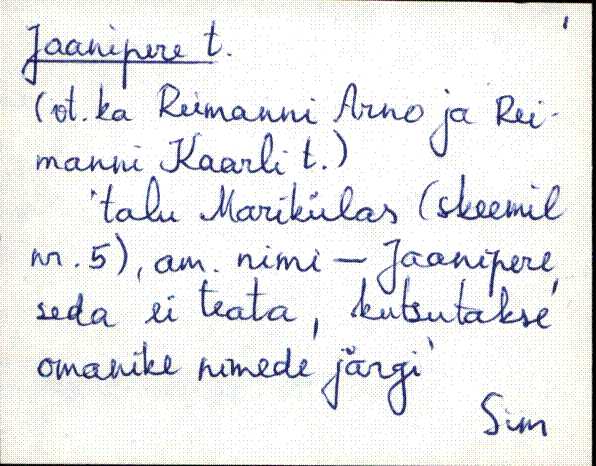 Jaanipere t.
(vt. ka Reimanni Arno ja Rei-
manni Kaarli t.)
'talu Marikülas (skeemil
nr. 5), am. nimi — Jaanipere,
seda ei teata, kutsutakse
omanike nimede järgi'
Sim